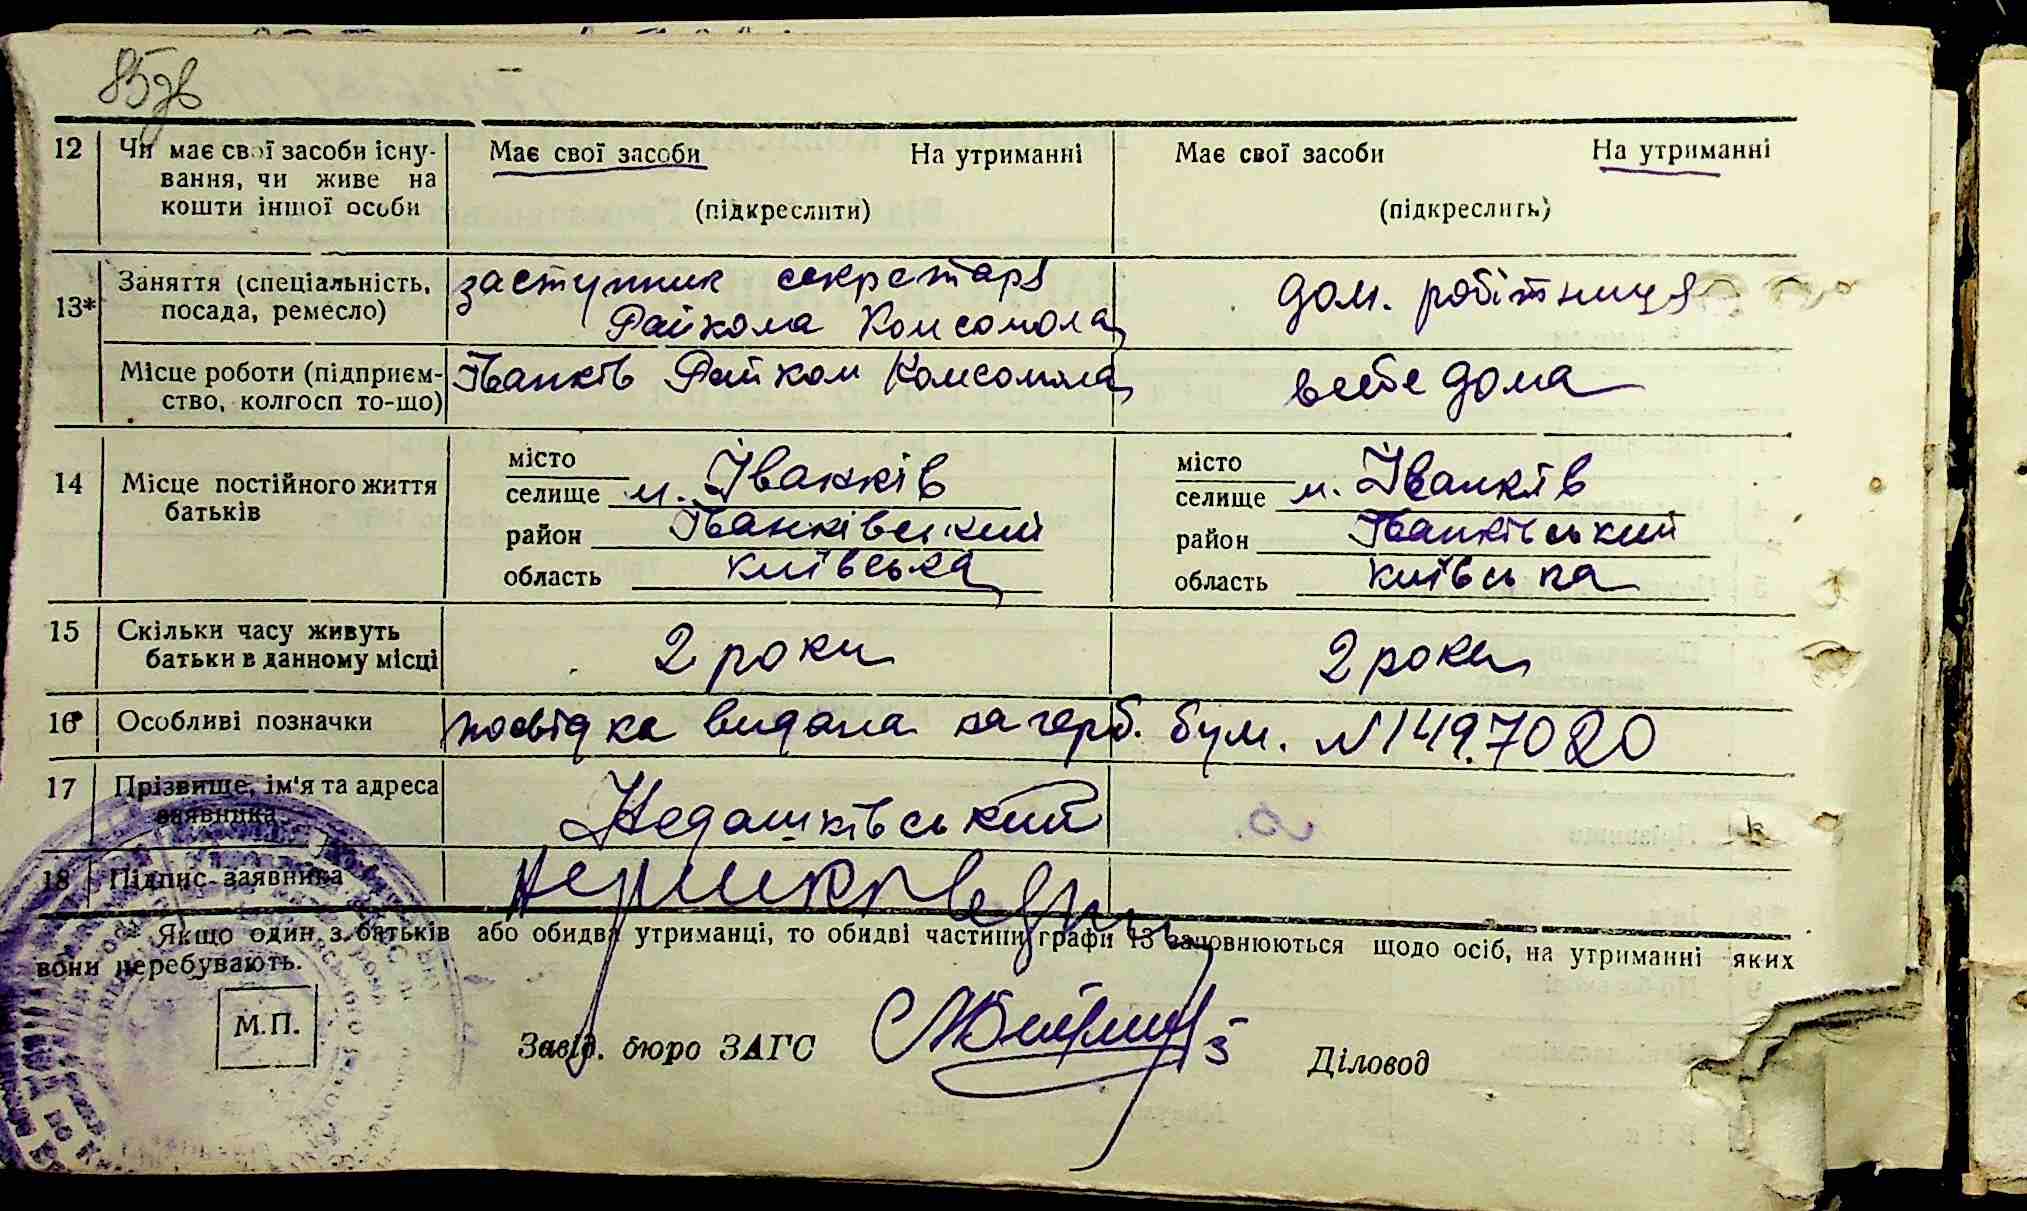 85зв
12 Чи має свої засоби існу- Має свої засоби На утриманні Має свої засоби На утриманні
вання, чи живе на
кошти іншої особи (підкреслити) (підкреслить)
13* Заняття (спеціальність, заступник секретаря дом. робітниця
посада, ремесло) Райкома Комсомола
Місце роботи (підприєм- Іванків Райком Комсомола в себе дома
ство, колгосп то-що)
14 Місце постійного життя місто місто
батьків селище м. Іванків селище м. Іванків
район Іванківський район Іванківський
область київська область київська
15 Скільки часу живуть 2 роки 2 роки
батьки в данному місці
16 Особливі позначки посвідка видана на герб. бум. №1497020
17 Прізвище, ім'я та адреса Недашківський
заявника
18 Підпис заявника
* Якщо один з батьків або обидва утриманці, то обидві частини графи 13 заповнюються щодо осіб, на утриманні яких
вони перебувають.
М.П.
Завід. бюро ЗАГС Діловод